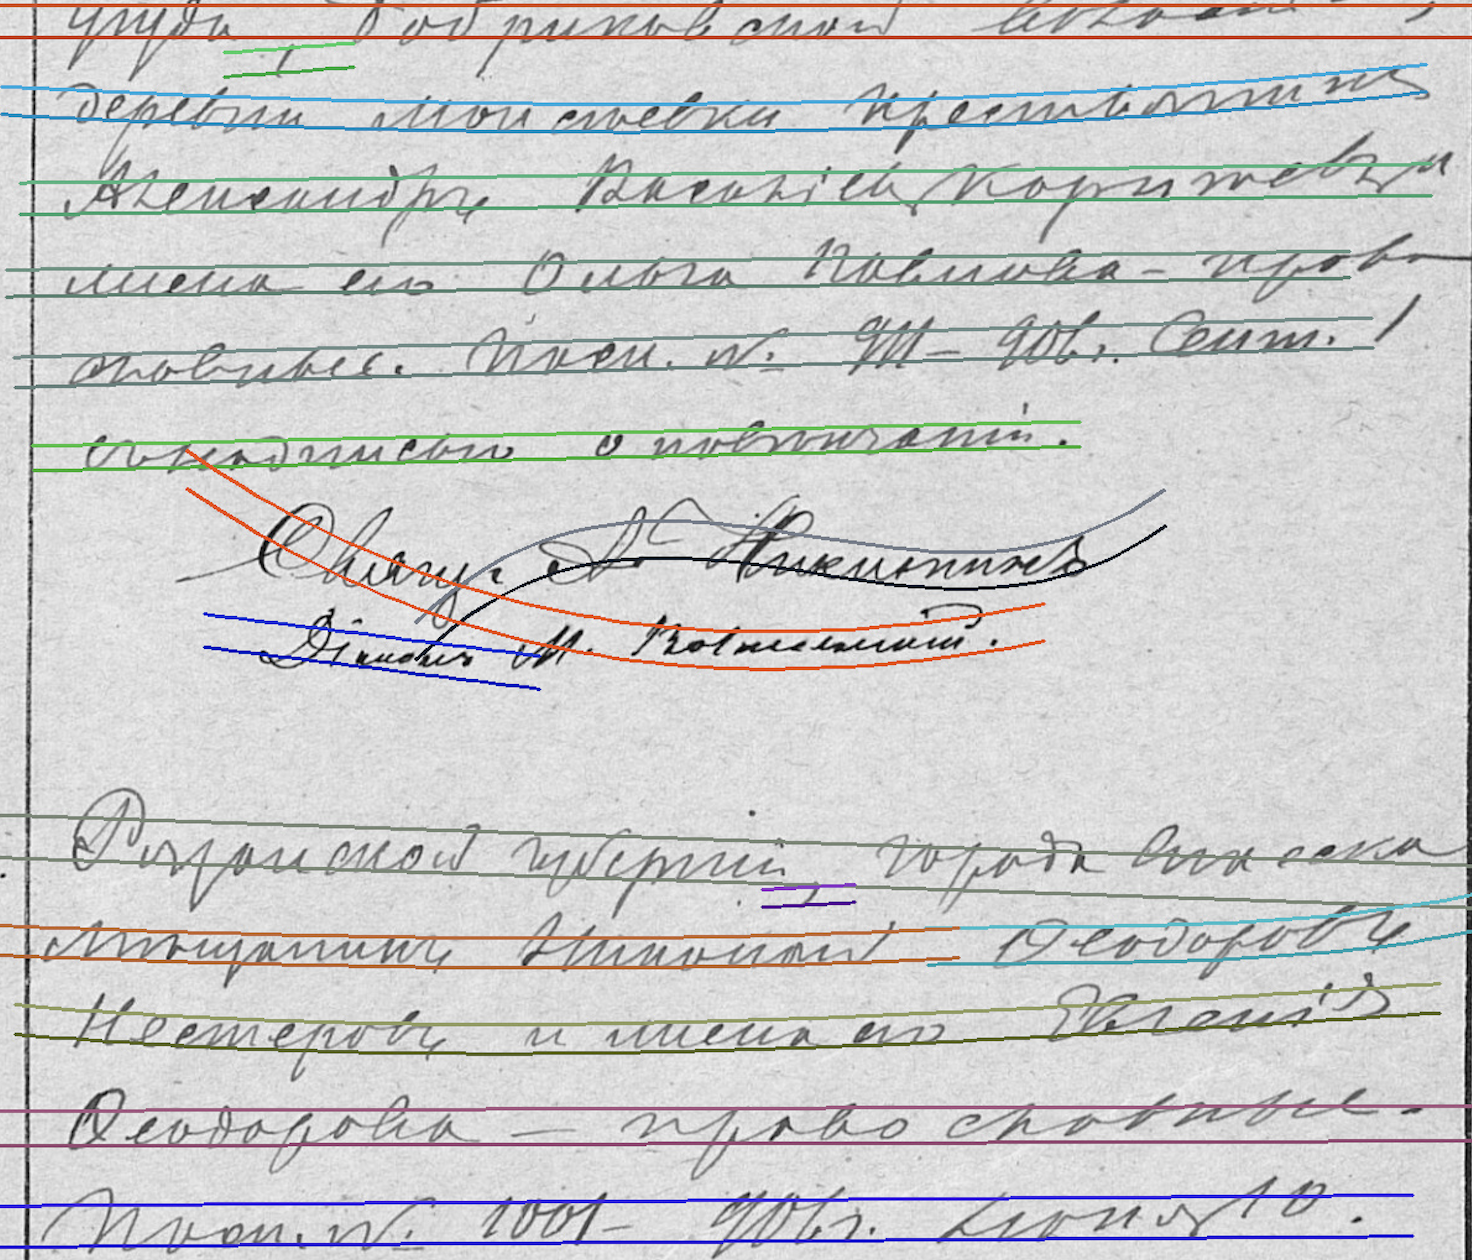 уѣзда, Бобриковской волости,
деревни Моисѣевки крестьянинъ
Александръ Васильевъ и
жена его Ольга Павлова - право
славные. Пасп. №. 911 - 906 г. Сент. 1
съ надписью о повѣнчаніи.
Свящ. А. Никитинъ
Діаконъ М.
Рязанской губерніи, города Спасска
мѣщанинъ Николай Ѳеодоровъ
Нестеровъ и жена его Евгенія
Ѳеодорова — православные.
Пасп. №. 1001 - 906 г. Іюня 10.